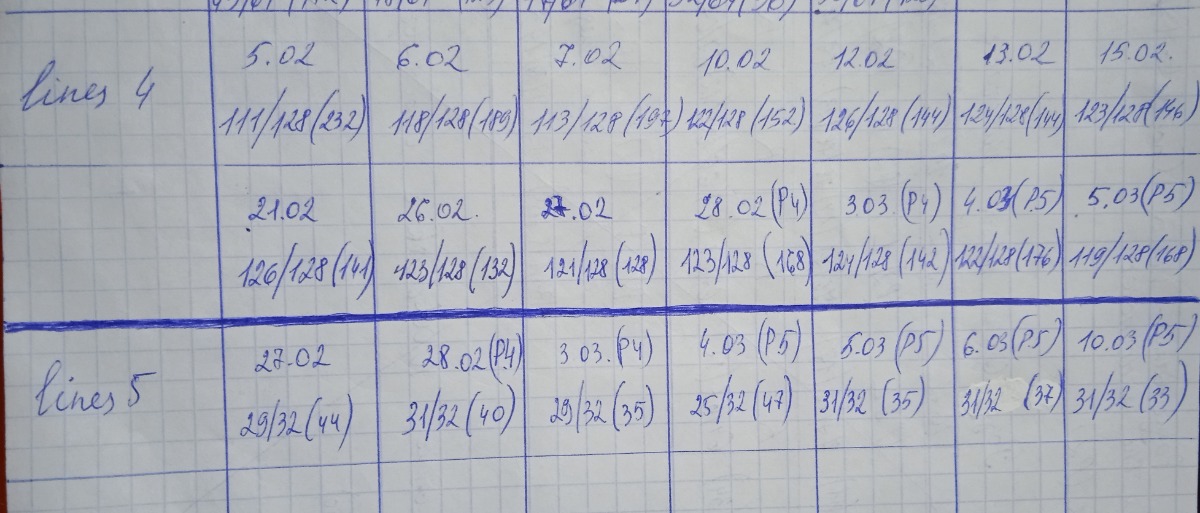 5.02 6.02 7.02 10.02 12.02 13.02 15.02.
lines 4
111/128(232) 118/128(189) 113/128(197) 122/128(152) 126/128(144) 124/128(144) 123/128(146)
21.02 26.02. 27.02 28.02(P4) 3.03.(P4) 4.03(P.5) 5.03(P5)
126/128(141) 123/128(132) 121/128(128) 123/128(168) 124/128(142) 122/128(176) 119/128(168)
27.02 28.02(P.4) 3 03.(P4) 4.03(P.5) 5.03(P5) 6.03(P5) 10.03(P5)
lines 5
29/32(44) 31/32(40) 29/32(35) 25/32(47) 31/32(35) 31/32(37) 31/32(33)